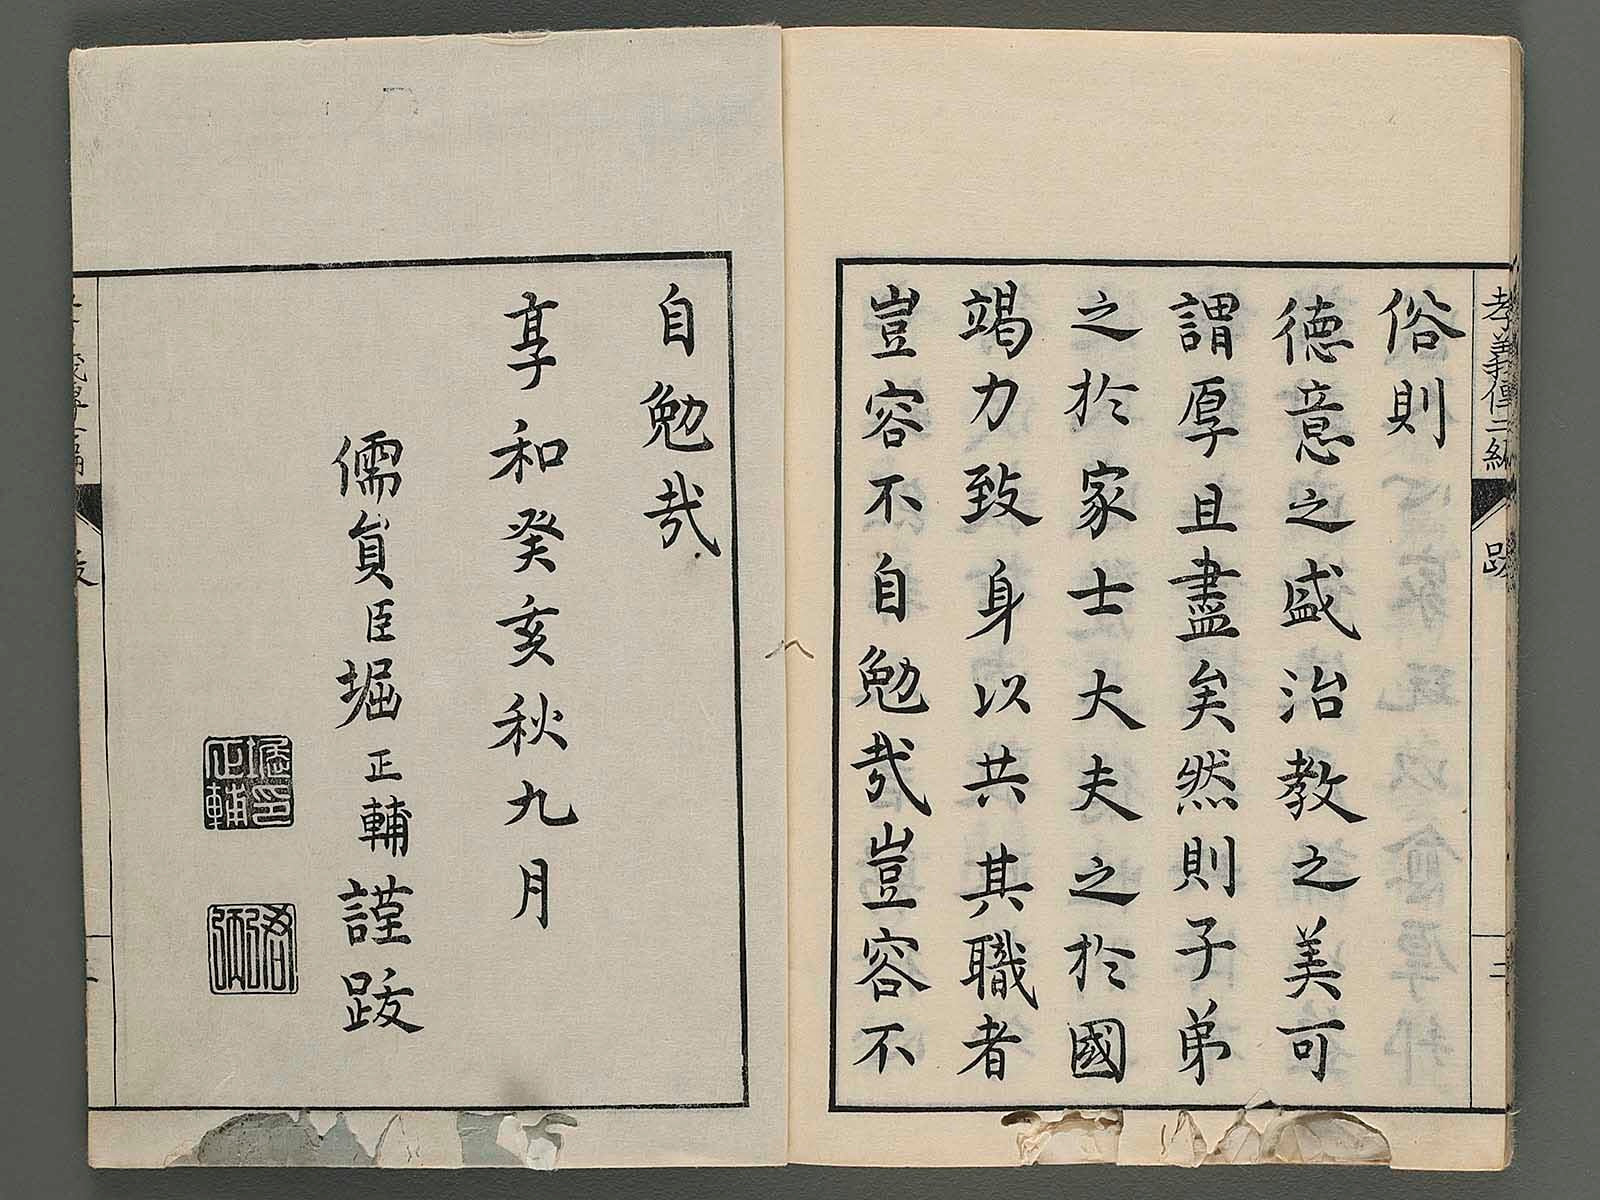 孝義傳二編
跋
俗則
德意之盛治教之美可
謂厚且盡矣然則子弟
之於家士大夫之於國
竭力致身以共其職者
豈容不自勉哉豈容不
自勉哉
享和癸亥秋九月
儒員臣堀正輔謹跋